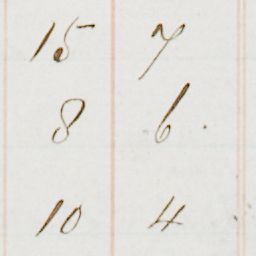 15 7
8 6.
10 4